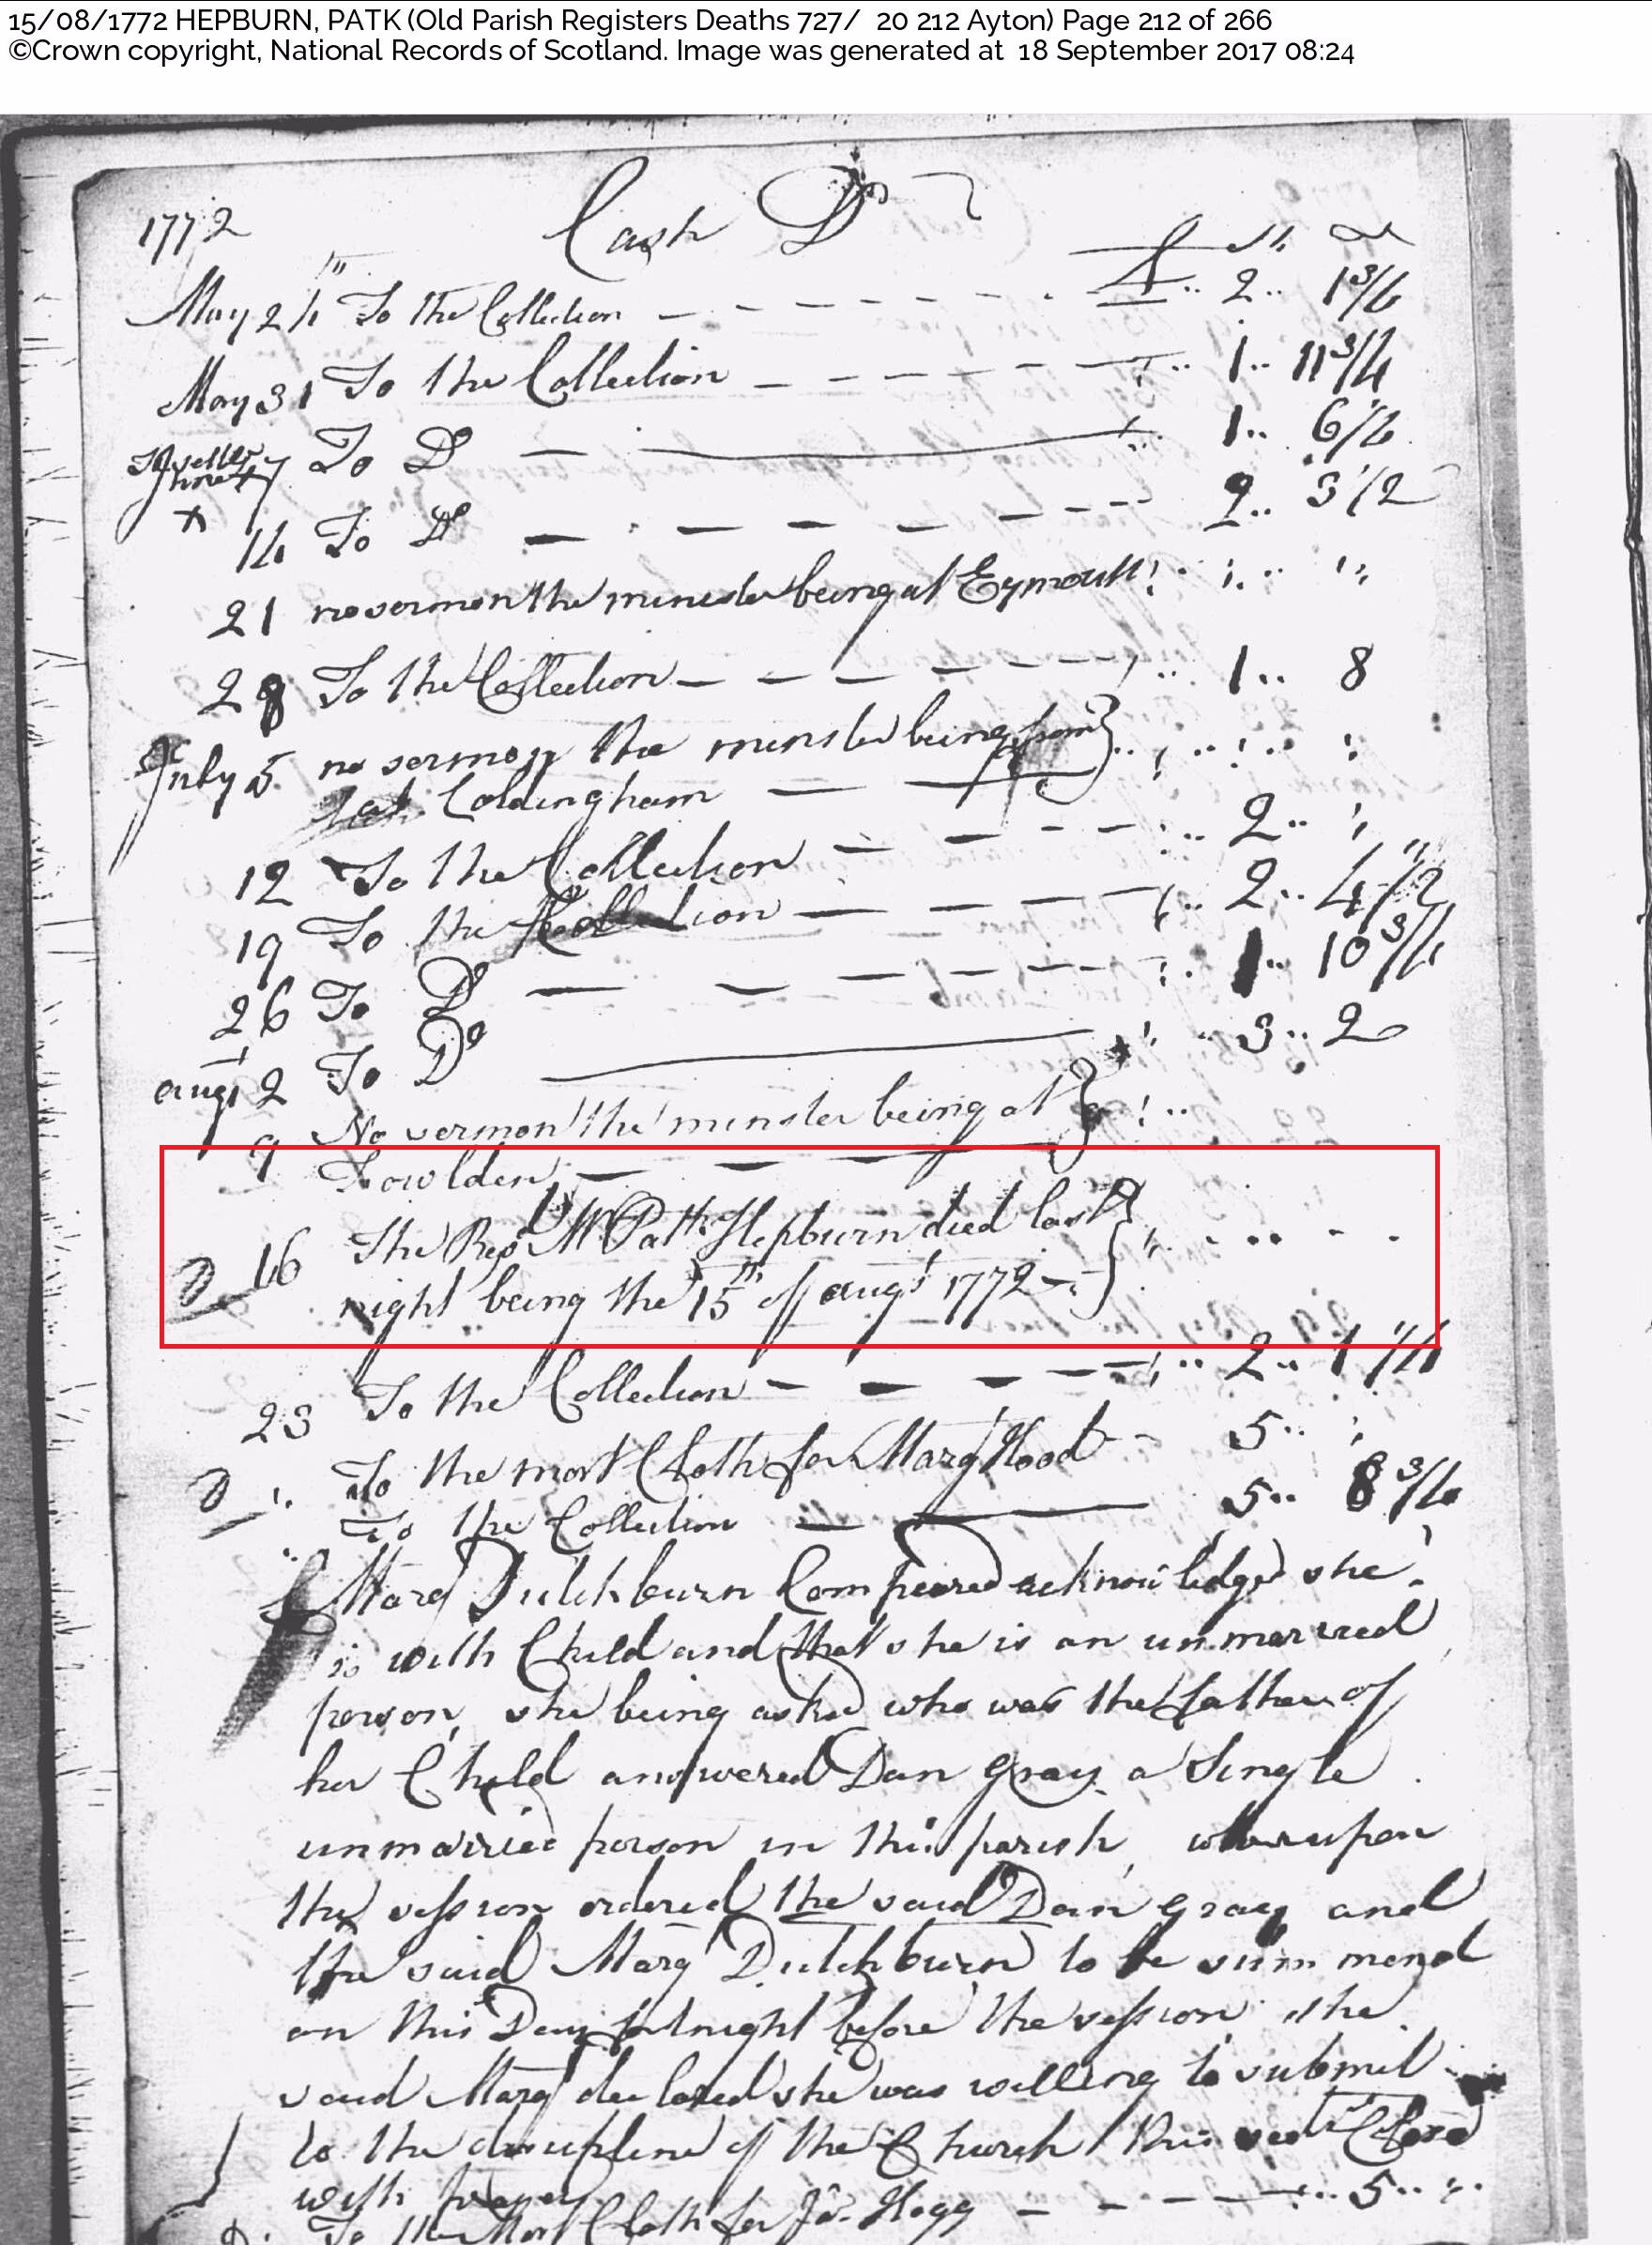 15/08/1772 HEPBURN, PATK (Old Parish Registers Deaths 727/ 20 212 Ayton) Page 212 of 266
©Crown copyright, National Records of Scotland. Image was generated at 18 September 2017 08:24
1772 Cash Dr
£ Sh D
May 24 To the Collection 2 1 3/4
May 31 To the Collection 1 11 3/4
7 To Do 1 6 1/2
14 To Do 2 3 1/2
21 no sermon the minister being at Eymouth
28 To the Collection 1 8
July 5 no sermon the minister being from
at Coldingham
12 To the Collection 2
19 To the Collection 2 4 1/2
26 To Do 1 10 3/4
augt 2 To Do 3 2
9 No sermon the minister being at
Fowlden
D 16 The Revd Mr Patk Hepburn died last
night being the 15th of augt 1772
23 To the Collection 2 1 1/4
D To the mort Cloth for Marg Hood 5
To the Collection 5 8 3/4
Marg Dutchburn Compeared acknowledged she
is with Child and that she is an unmarried
person, she being asked who was the father of
her Child answered Dan gray a Single
unmarried person in this parish, whereupon
the session ordered the said Dan gray and
the said Marg Dutchburn to be summond
on this Day fortnight before the session the
said Marg declared she was willing to submit
to the discipline of the Church this Closed
with prayer
D To the Mort Cloth for Jas Hogg 5